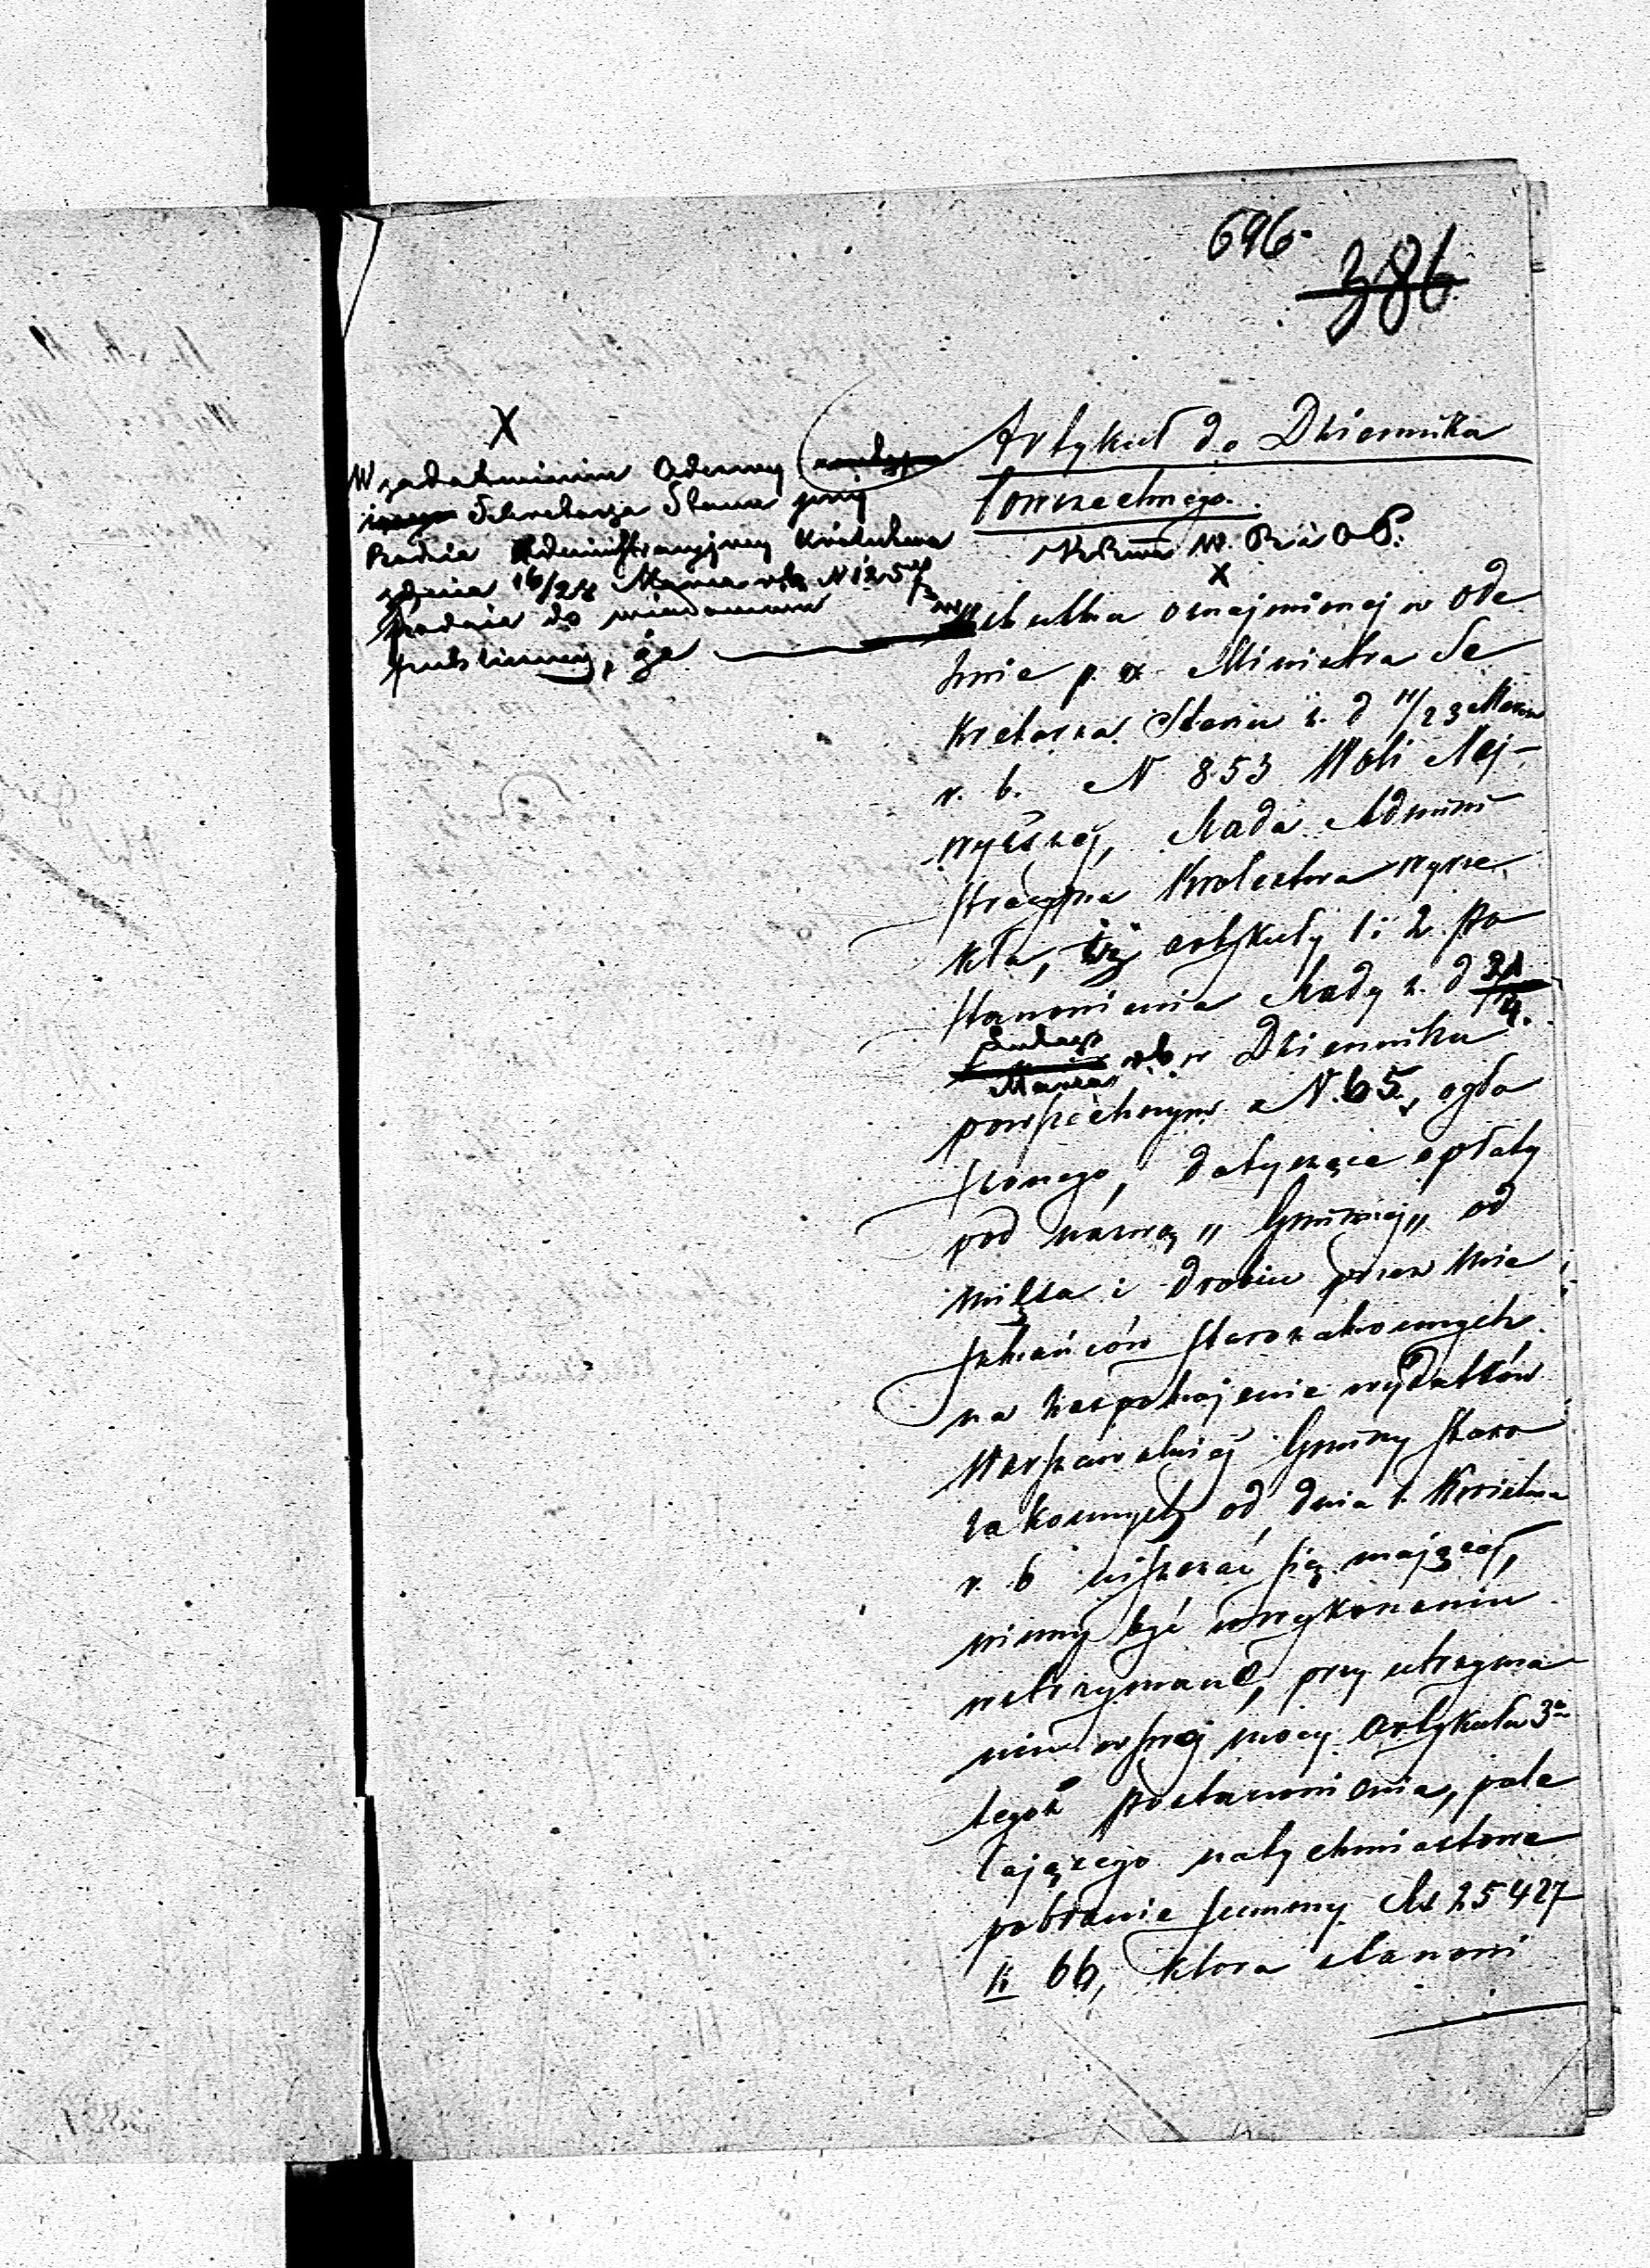 696
386
X
W zadość uczynieniu Odezwy
Sekretarza Stanu przy
Radzie Administracyjnej Królestwa
z dnia 16/28 Marca r. b. N 125
podaje do wiadomości
publicznej, że
Artykuł do Dziennika
Powszechnego.
X
w skutku oznajmionej w Ode
zwie p. o. Ministra Se
kretarza Stanu z. d 11/23 Marca
r. b. N 853 Woli Naj-
wyższej, Rada Admini
stracyjna Królestwa wyrze
kła, iż artykuły 1 i 2 Po
stanowienia Rady z. d
Marca r. b. w Dzienniku
powszechnym N. 65, ogło
szonego, dotyczące opłaty
pod nazwą „Gminnej„ od
mięsa i drobiu przez Mie
szkańców starozakonnych
na zaspokojenie wydatków
Warszawskiej Gminy staro
zakonnych od dnia 1. Kwietnia
r. b uiszczać się mającej,
winny być w wykonaniu
wstrzymane, przy utrzyma
niu w swej mocy Artykułu 3o
tegoż Postanowienia, pole
cającego natychmiastowe
pobranie summy Rs 25427
k 66, która stanowi